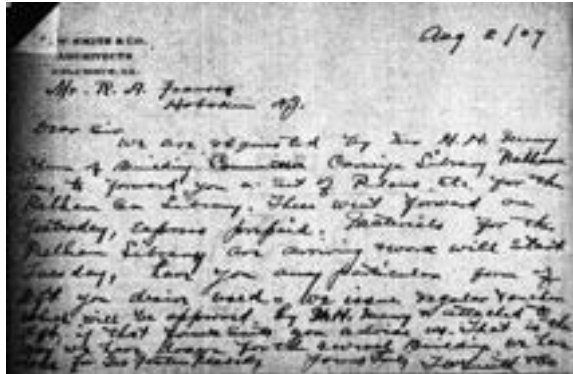 T. W. SMITH & CO.
ARCHITECTS
COLUMBUS, GA.
Aug 2/07
Mr. R. A. Franks
Hoboken NJ.
Dear Sir
We are requested by Mr H. H. Merry
Chmn of Building Committee Carnegie Library Pelham
Ga, to forward you a set of Plans etc for the
Pelham Ga Library. These went forward on
yesterday, express prepaid. Materials for the
Pelham Library are arriving & work will start
Tuesday, have you any particular form of
you desire used. We issue regular
which will be approved by Mr H. Merry & attached to
if that you advise us. That is the
way we have for the several Buildings we have
Yours truly